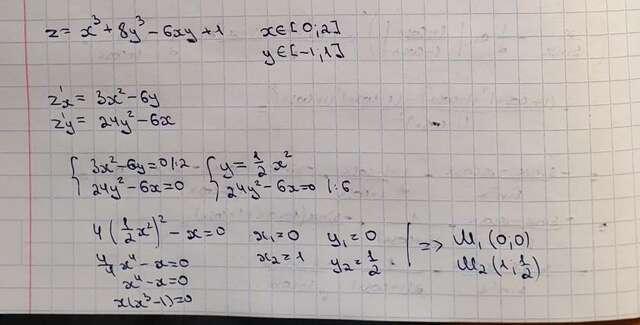 z = x³ + 8y³ - 6xy + 1 x∈[0;2]
y∈[-1,1]
z'x = 3x² - 6y
z'y = 24y² - 6x
{ 3x² - 6y = 0 |:2 { y = 1/2 x²
24y² - 6x = 0 24y² - 6x = 0 |:6
4(1/2 x²)² - x = 0 x₁ = 0 y₁ = 0 | => M₁ (0,0)
4/4 x⁴ - x = 0 x₂ = 1 y₂ = 1/2 M₂ (1; 1/2)
x⁴ - x = 0
x(x³ - 1) = 0